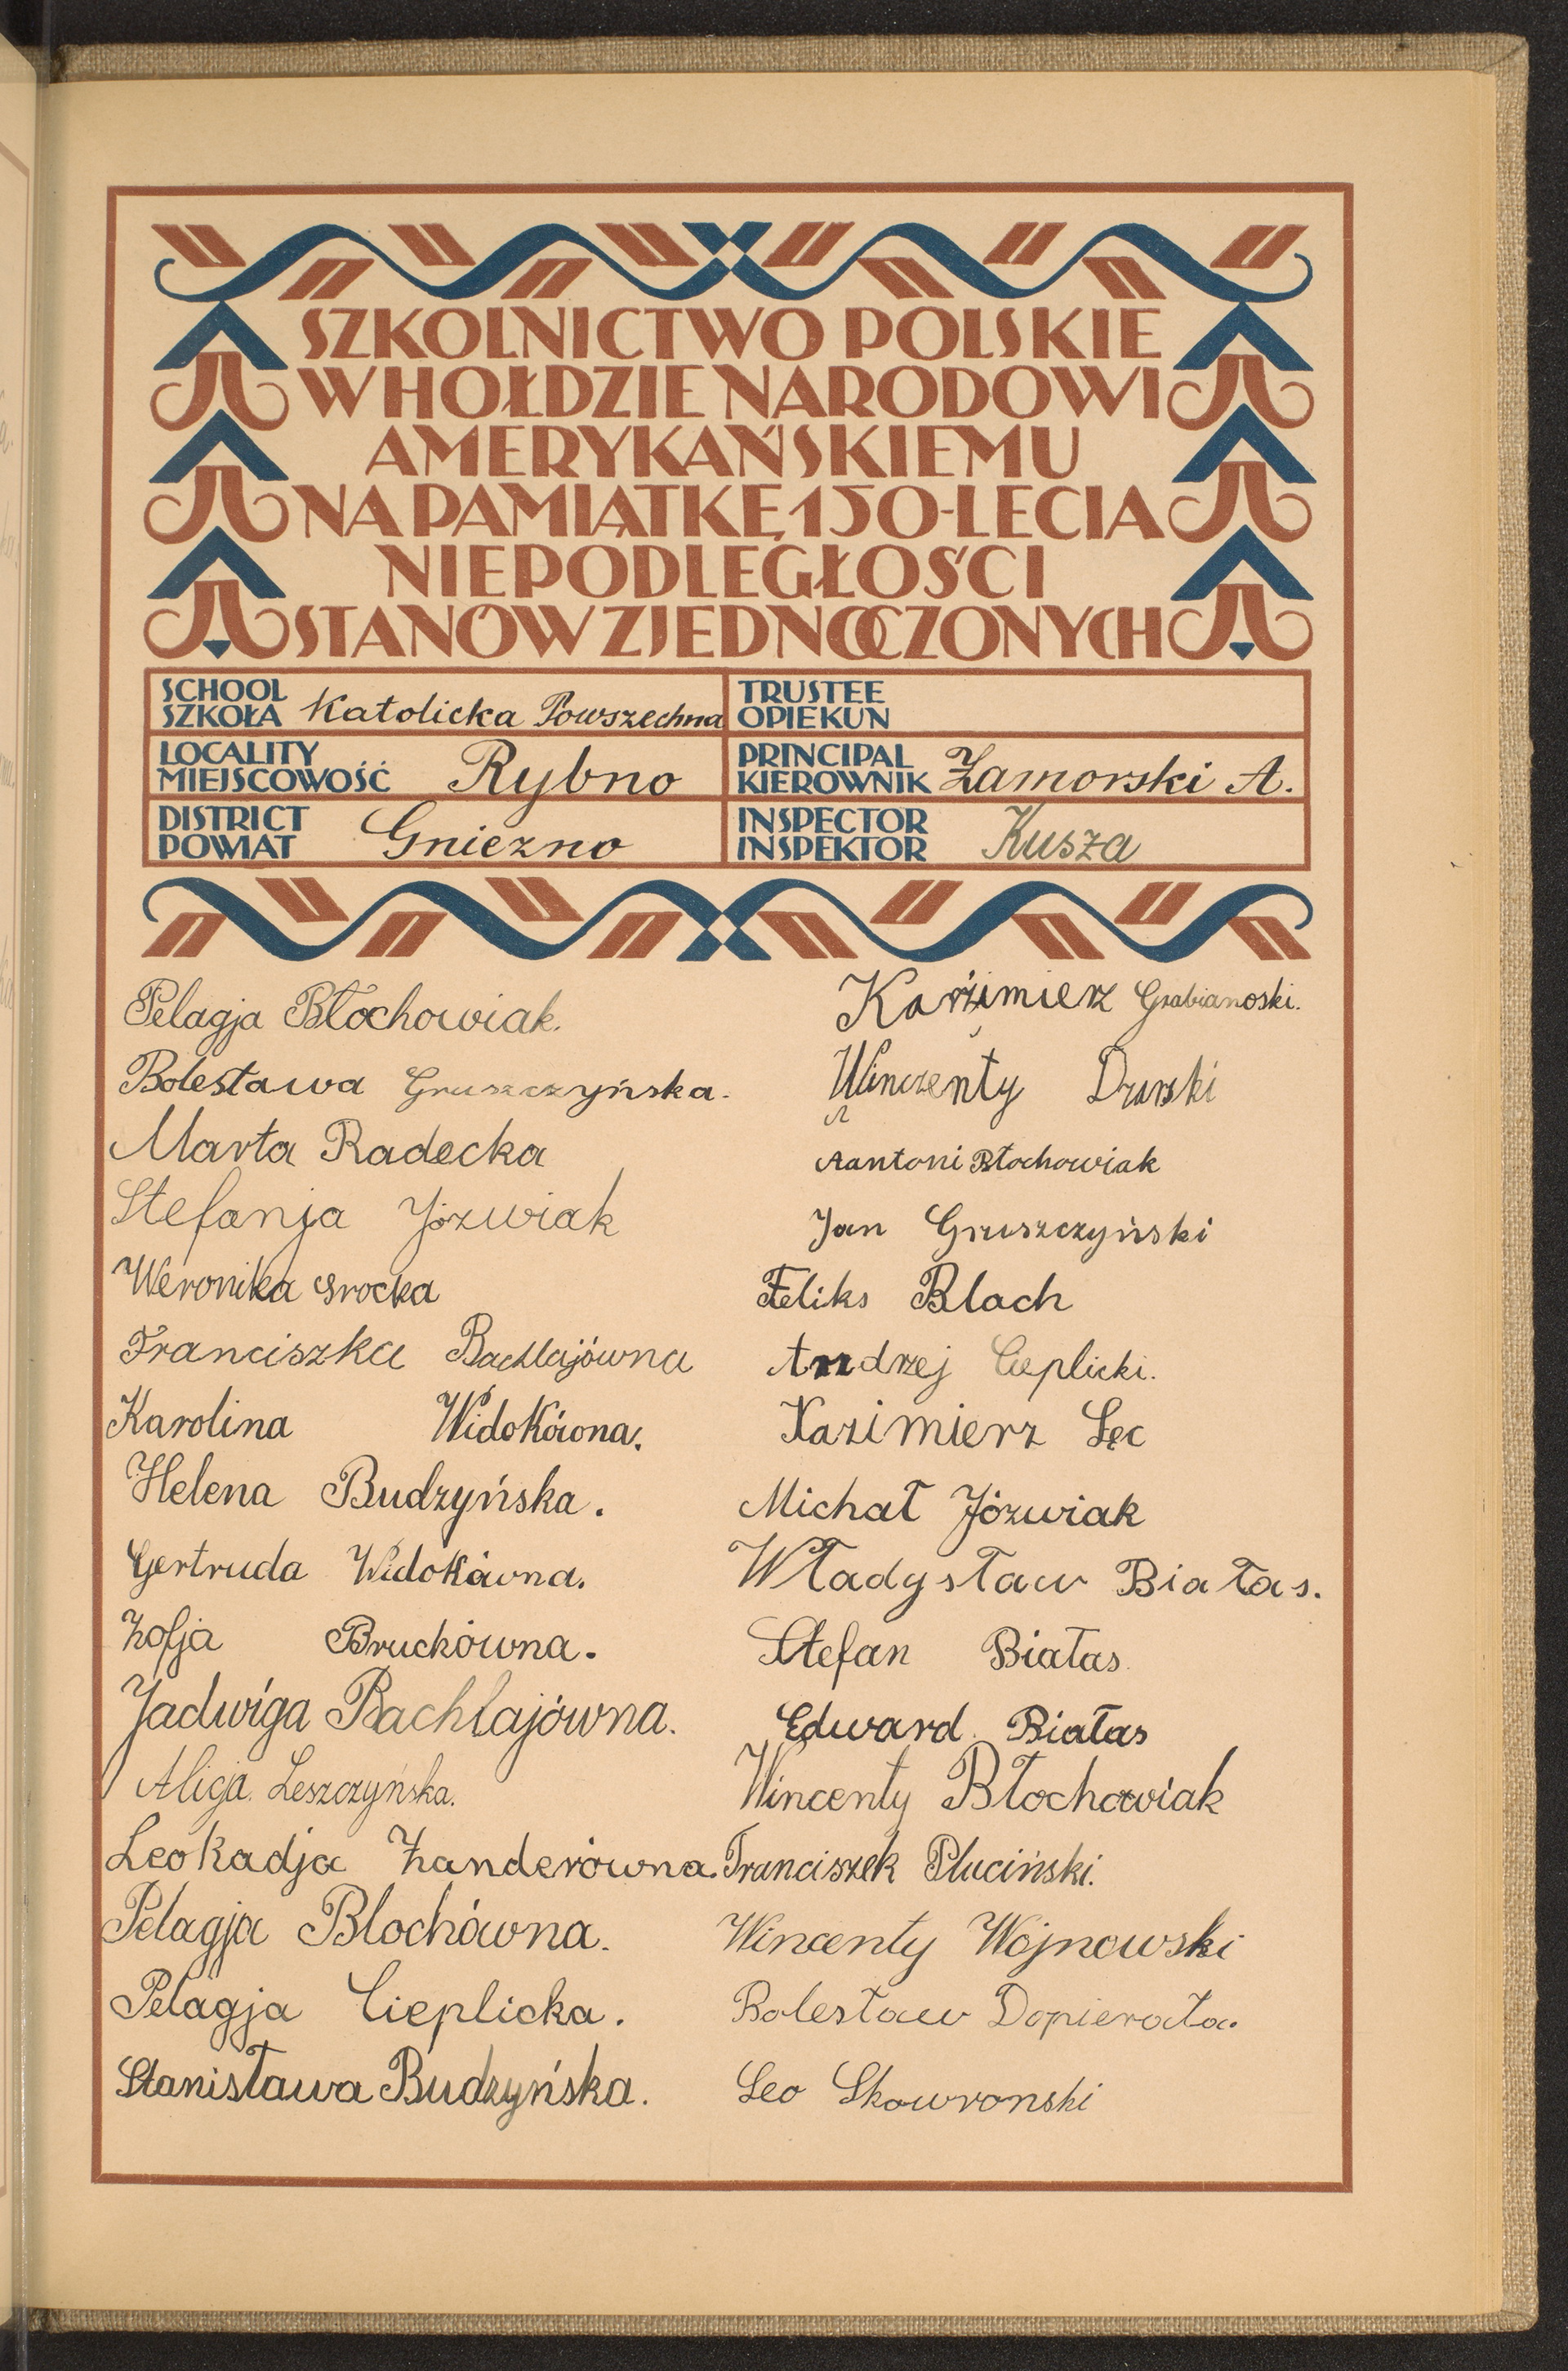 SZKOLNICTWO POLSKIE
W HOŁDZIE NARODOWI
AMERYKAŃSKIEMU
NA PAMIĄTKĘ 150-LECIA
NIEPODLEGŁOŚCI
STANÓW ZJEDNOCZONYCH
SCHOOL
SZKOŁA Katolicka Powszechna
TRUSTEE
OPIEKUN
LOCALITY
MIEJSCOWOŚĆ Rybno
PRINCIPAL
KIEROWNIK Zamorski A.
DISTRICT
POWIAT Gniezno
INSPECTOR
INSPEKTOR Kusza
Pelagja Błochowiak.
Bolesława Gruszczyńska.
Marta Radecka
Stefanja Józwiak
Weronika Srocka
Franciszka Bachlajówna
Karolina Widokówna.
Helena Budzyńska.
Gertruda Widokówna.
Zofja Bruckówna.
Jadwiga Bachlajówna.
Alicja Leszczyńska.
Leokadja Zanderówna.
Pelagja Blochówna.
Pelagja Cieplicka.
Stanisława Budzyńska.
Grabianoski.
Antoni Błochowiak
Jan Gruszczyński
Feliks Blach
Andrzej Cieplicki.
Kazimierz Lęc
Michał Józwiak
Władysław Białas.
Stefan Białas
Edward Białas
Wincenty Błochowiak
Franciszek Pluciński.
Wincenty Wojnowski
Bolesław Dopierała.
Leo Skowronski